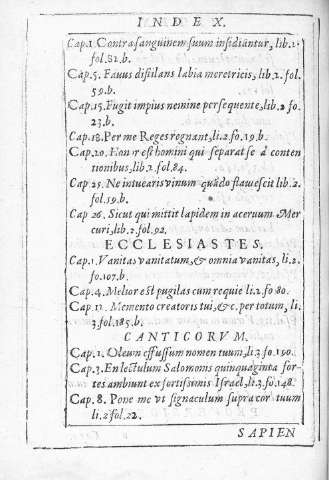 INDEX.
Cap.1. Contra sanguinem suum insidiãtur, lib.1.
fol.81.b.
Cap.5. Fauus distilans labia meretricis, lib.2. fol.
59.b.
Cap.15. Fugit impius nemine persequente, lib.2 fo.
23.b.
Cap.18. Per me Reges regnant, li.2.fo.19.b.
Cap.20. Honor est homini qui separat se à conten
tionibus, lib.2. fol.84.
Cap 25. Ne intuearis vinum quãdo flauescit lib.2.
fol.59.b.
Cap 26. Sicut qui mittit lapidem in aceruum Mer
curi, lib.2.fol.92.
ECCLESIASTES.
Cap.1. Vanitas vanitatum, & omnia vanitas, li.2.
fo.107.b.
Cap.4. Melior est pugilas cum requie li.2.fo 80.
Cap.12. Memento creatoris tui, &c. per totum, li.
3.fol.185.b.
CANTICORVM.
Cap.1. Oleum effussum nomen tuum, li.3.fo.190.
Cap.3. En lectulum Salomonis quinquaginta for
tes ambiunt ex fortissimis Israel, li.3.fo.148.
Cap.8. Pone me vt signaculum supra cor tuum
li.2.fol.22.
SAPIEN